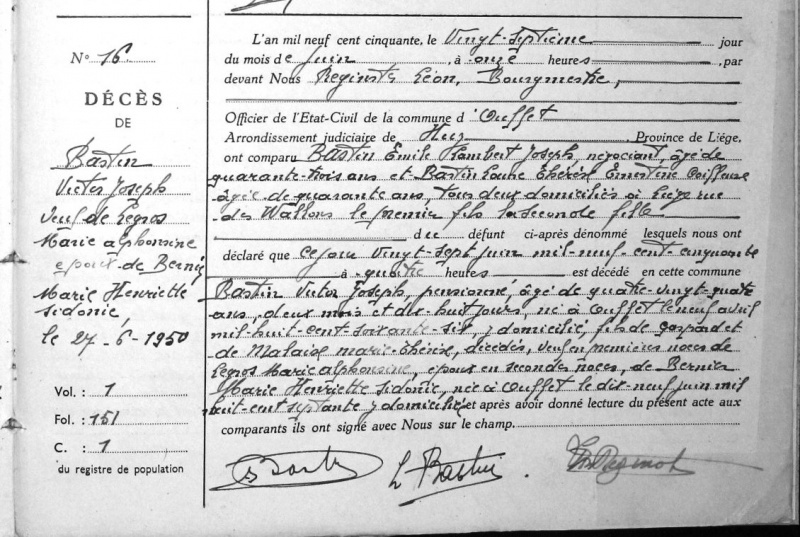 N° 16
DÉCÈS
DE
Bastin
Victor Joseph
Veuf de Legros
Marie Alphonsine
epoux de Bernier
Marie Henriette
Sidonie,
le 27-6-1950
Vol. : 1
Fol. : 151
C. : 1
du registre de population
L'an mil neuf cent cinquante, le Vingt-Septième jour
du mois de juin, à onze heures, par
devant Nous Reginster Léon, Bourgmestre,
Officier de l'Etat-Civil de la commune d'Ouffet
Arrondissement judiciaire de Huy, Province de Liége,
ont comparu Bastin Emile Humbert Joseph, négociant, âgé de
quarante-trois ans et Bastin Laure Thérèse Ernestine Coiffeuse
âgée de quarante ans, tous deux domiciliés à Liége rue
des Wallons le premier fils la seconde fille
du défunt ci-après dénommé lesquels nous ont
déclaré que ce jour Vingt-sept juin mil-neuf-cent-cinquante
à quatre heures est décédé en cette commune
Bastin Victor Joseph, pensionné, âgé de quatre-vingt-quatre
ans, deux mois et dix-huit jours, né à Ouffet le neuf avril
mil-huit-cent-soixante-six, y domicilié, fils de Gaspard et
de Malaise Marie-Thérèse, décédés, veuf en premières noces de
Legros Marie Alphonsine, epoux en secondes noces, de Bernier
Marie Henriette Sidonie, née à Ouffet le dix-neuf juin mil
huit-cent septante y domiciliée et après avoir donné lecture du présent acte aux
comparants ils ont signé avec Nous sur le champ.
L Bastin